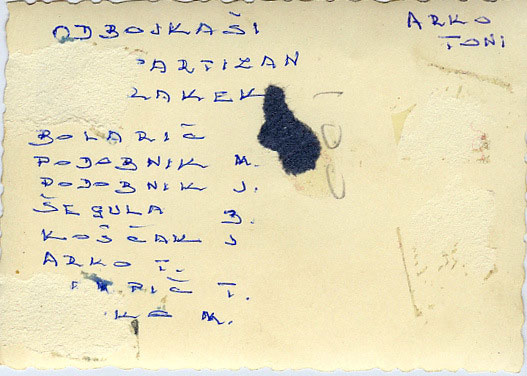 ODBOJKAŠI
PARTIZAN
RAKEK
ARKO
TONI
BOLARIČ
PODOBNIK M.
PODOBNIK J.
ŠEGULA B.
KOŠČAK J
ARKO T.
T.
M.